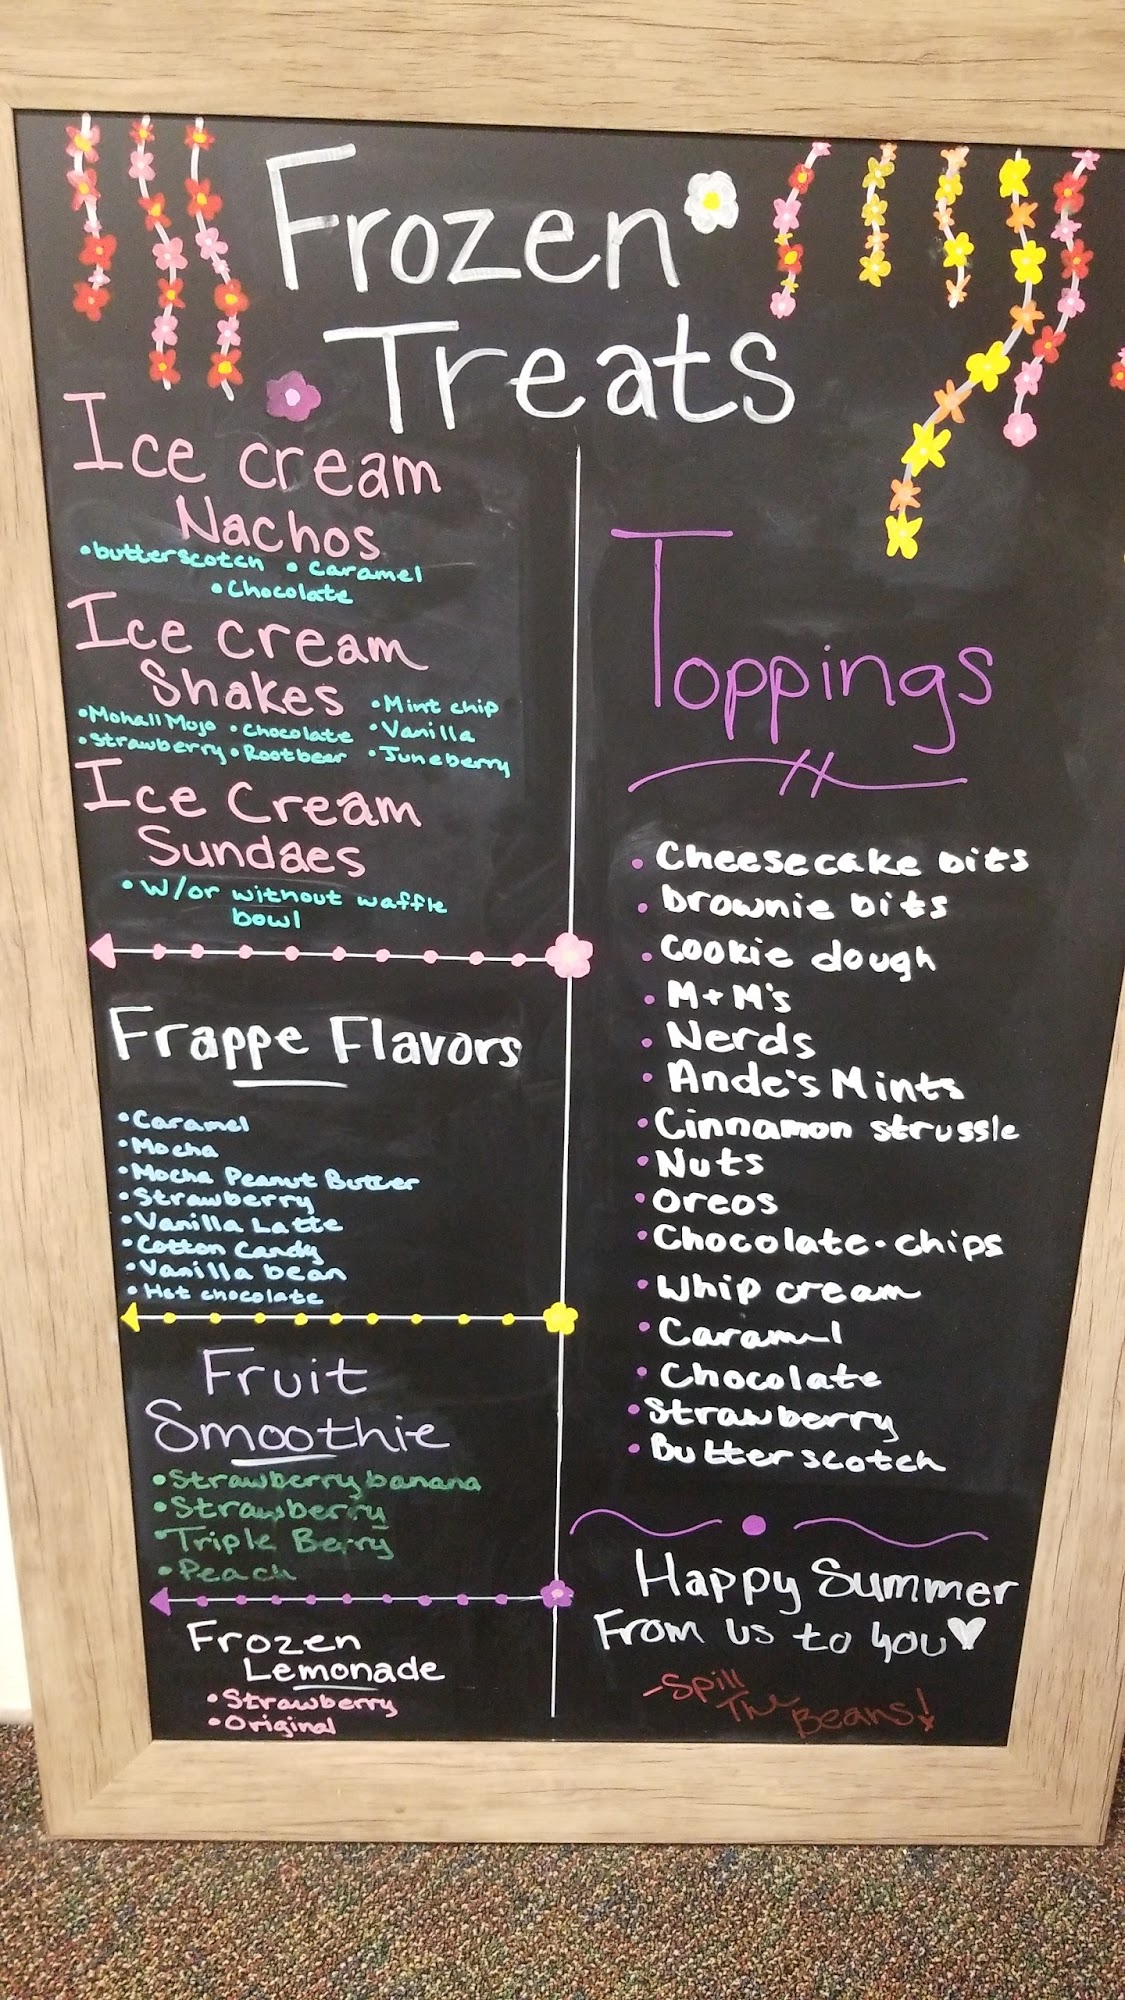 Frozen
Treats
Ice cream
Nachos
•butterscotch •caramel
•Chocolate
Ice cream
Shakes
•Mint chip
•Mohall Mojo •Chocolate •Vanilla
•Strawberry •Rootbeer •Juneberry
Ice Cream
Sundaes
•W/or without waffle
bowl
Frappe Flavors
•Caramel
•Mocha
•Mocha Peanut Butter
•Strawberry
•Vanilla Latte
•Cotton Candy
•Vanilla bean
•Hot chocolate
Fruit
Smoothie
•Strawberry banana
•Strawberry
•Triple Berry
•Peach
Frozen
Lemonade
•Strawberry
•Original
Toppings
•Cheesecake bits
•brownie bits
•cookie dough
•M+M's
•Nerds
•Ande's Mints
•Cinnamon strussle
•Nuts
•oreos
•Chocolate-chips
•Whip cream
•Caramel
•Chocolate
•Strawberry
•Butterscotch
Happy Summer
From us to you
-Spill
The
Beans!